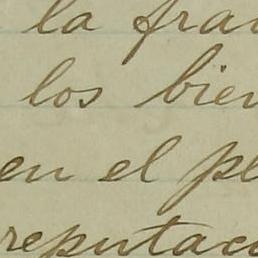 la fra
los bien
en el pe
reputaci